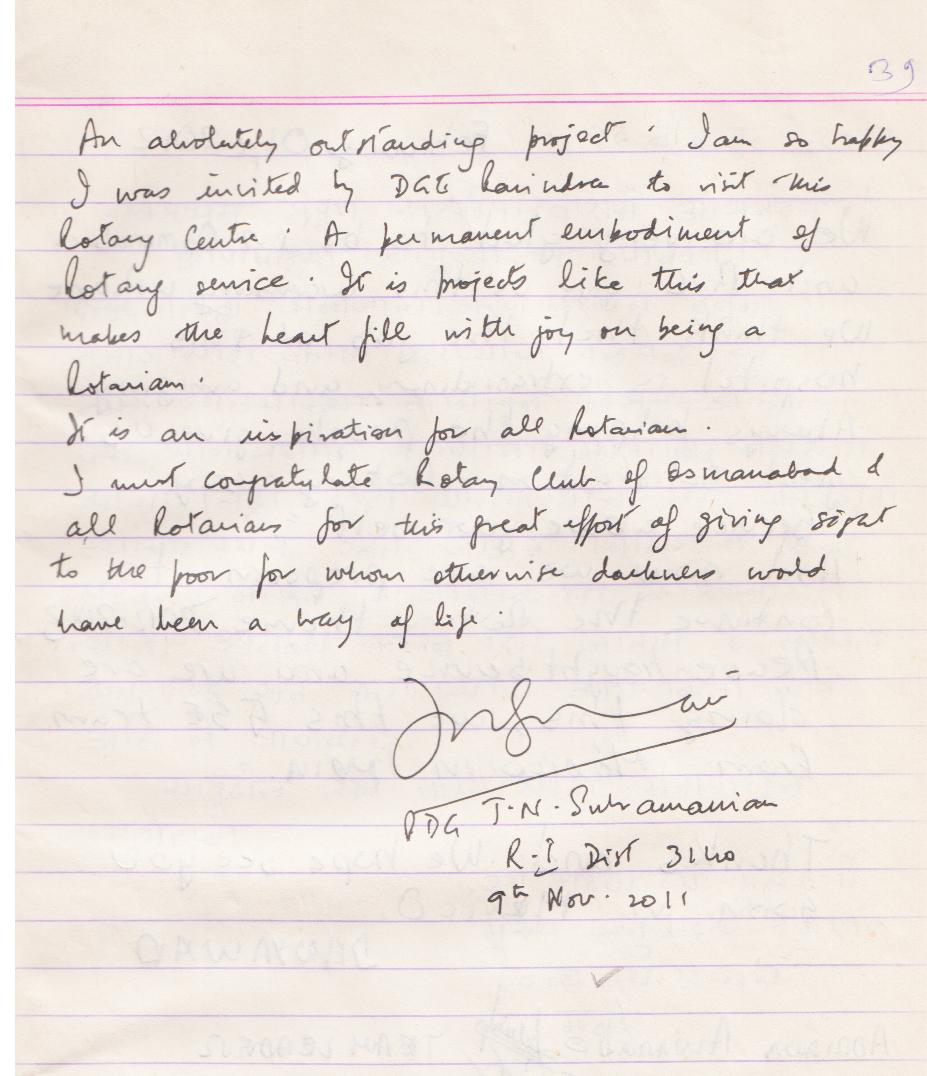 39
An absolutely outstanding project. I am so happy
I was invited by DGE Ravindra to visit this
Rotary Centre. A permanent embodiment of
Rotary service. It is projects like this that
makes the heart fill with joy on being a
Rotarian.
It is an inspiration for all Rotarians.
I must congratulate Rotary Club of Osmanabad &
all Rotarians for this great effort of giving sight
to the poor for whom otherwise darkness would
have been a way of life.
PDG T.N. Subramanian
R.I Dist 3140
9th Nov. 2011